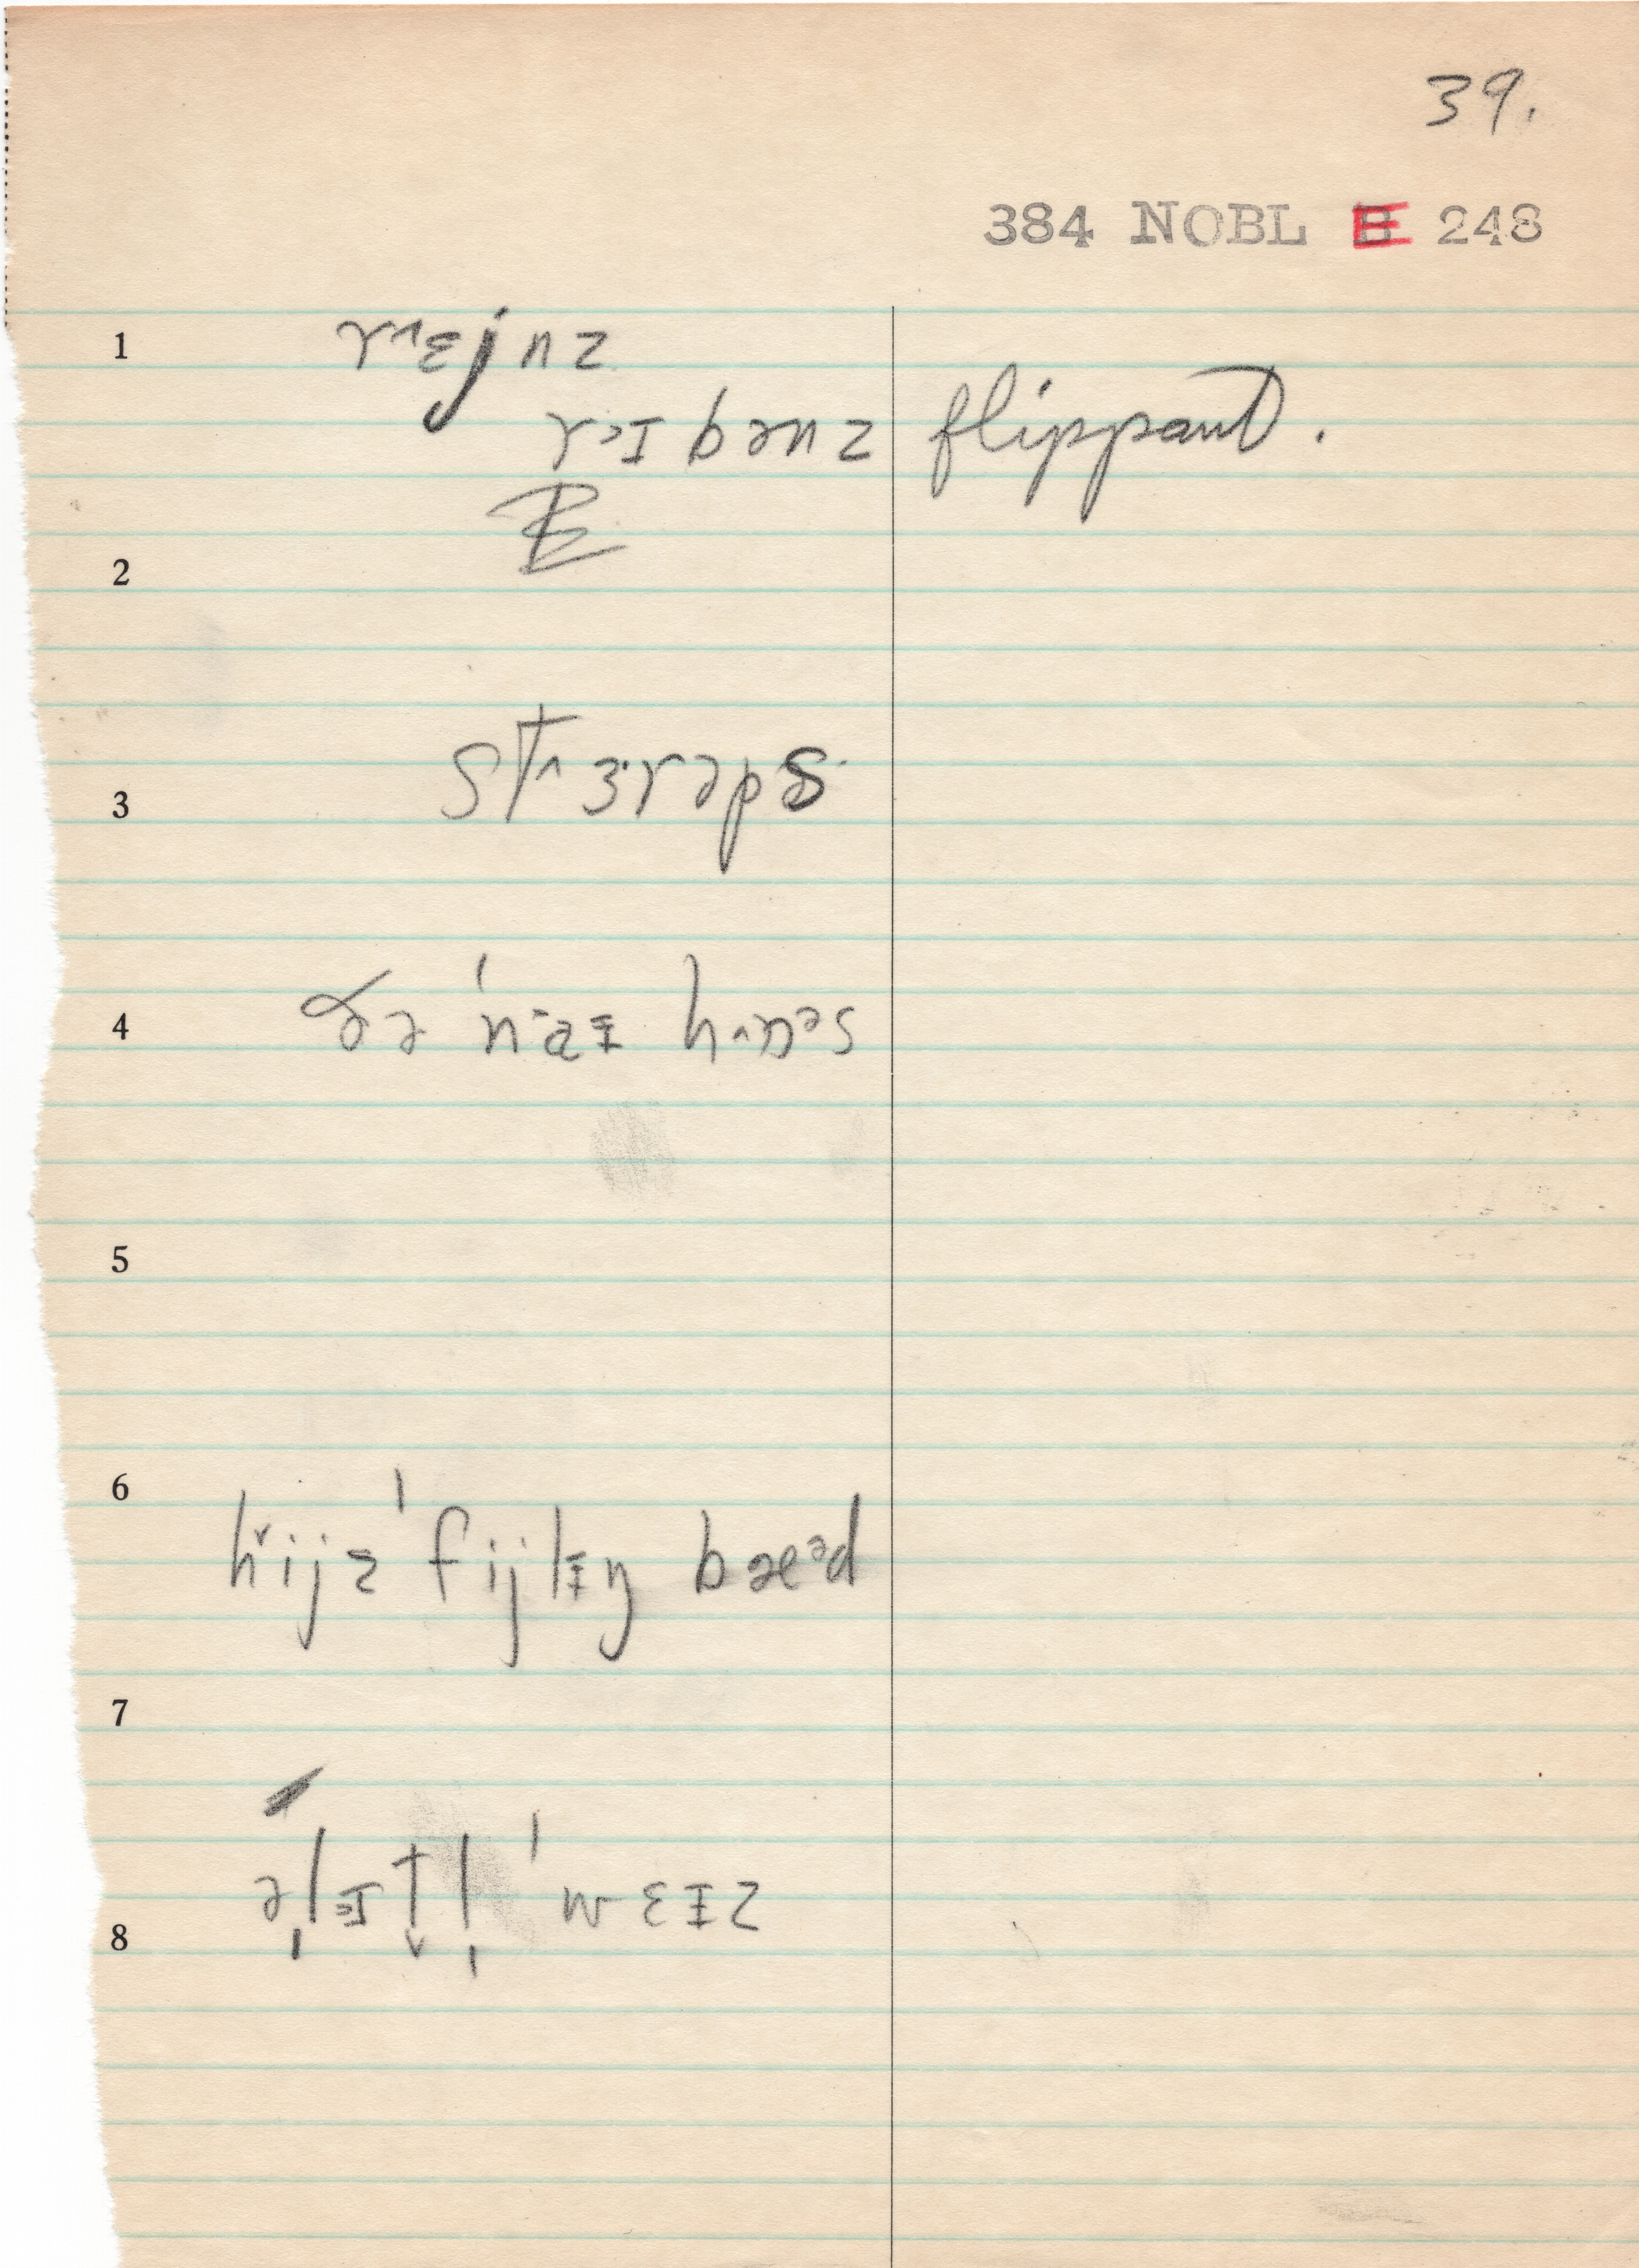 39.
384 NOBL B 248
1 r˄ɛjnz
rɪbənz flippant.
2
3 st˄ɜrəps
4 ðə ˈnaɪ hɒs
5
6 hijz ˈfijlɪŋ bæəd
7
əlɪtl ˈmɛɪz
8